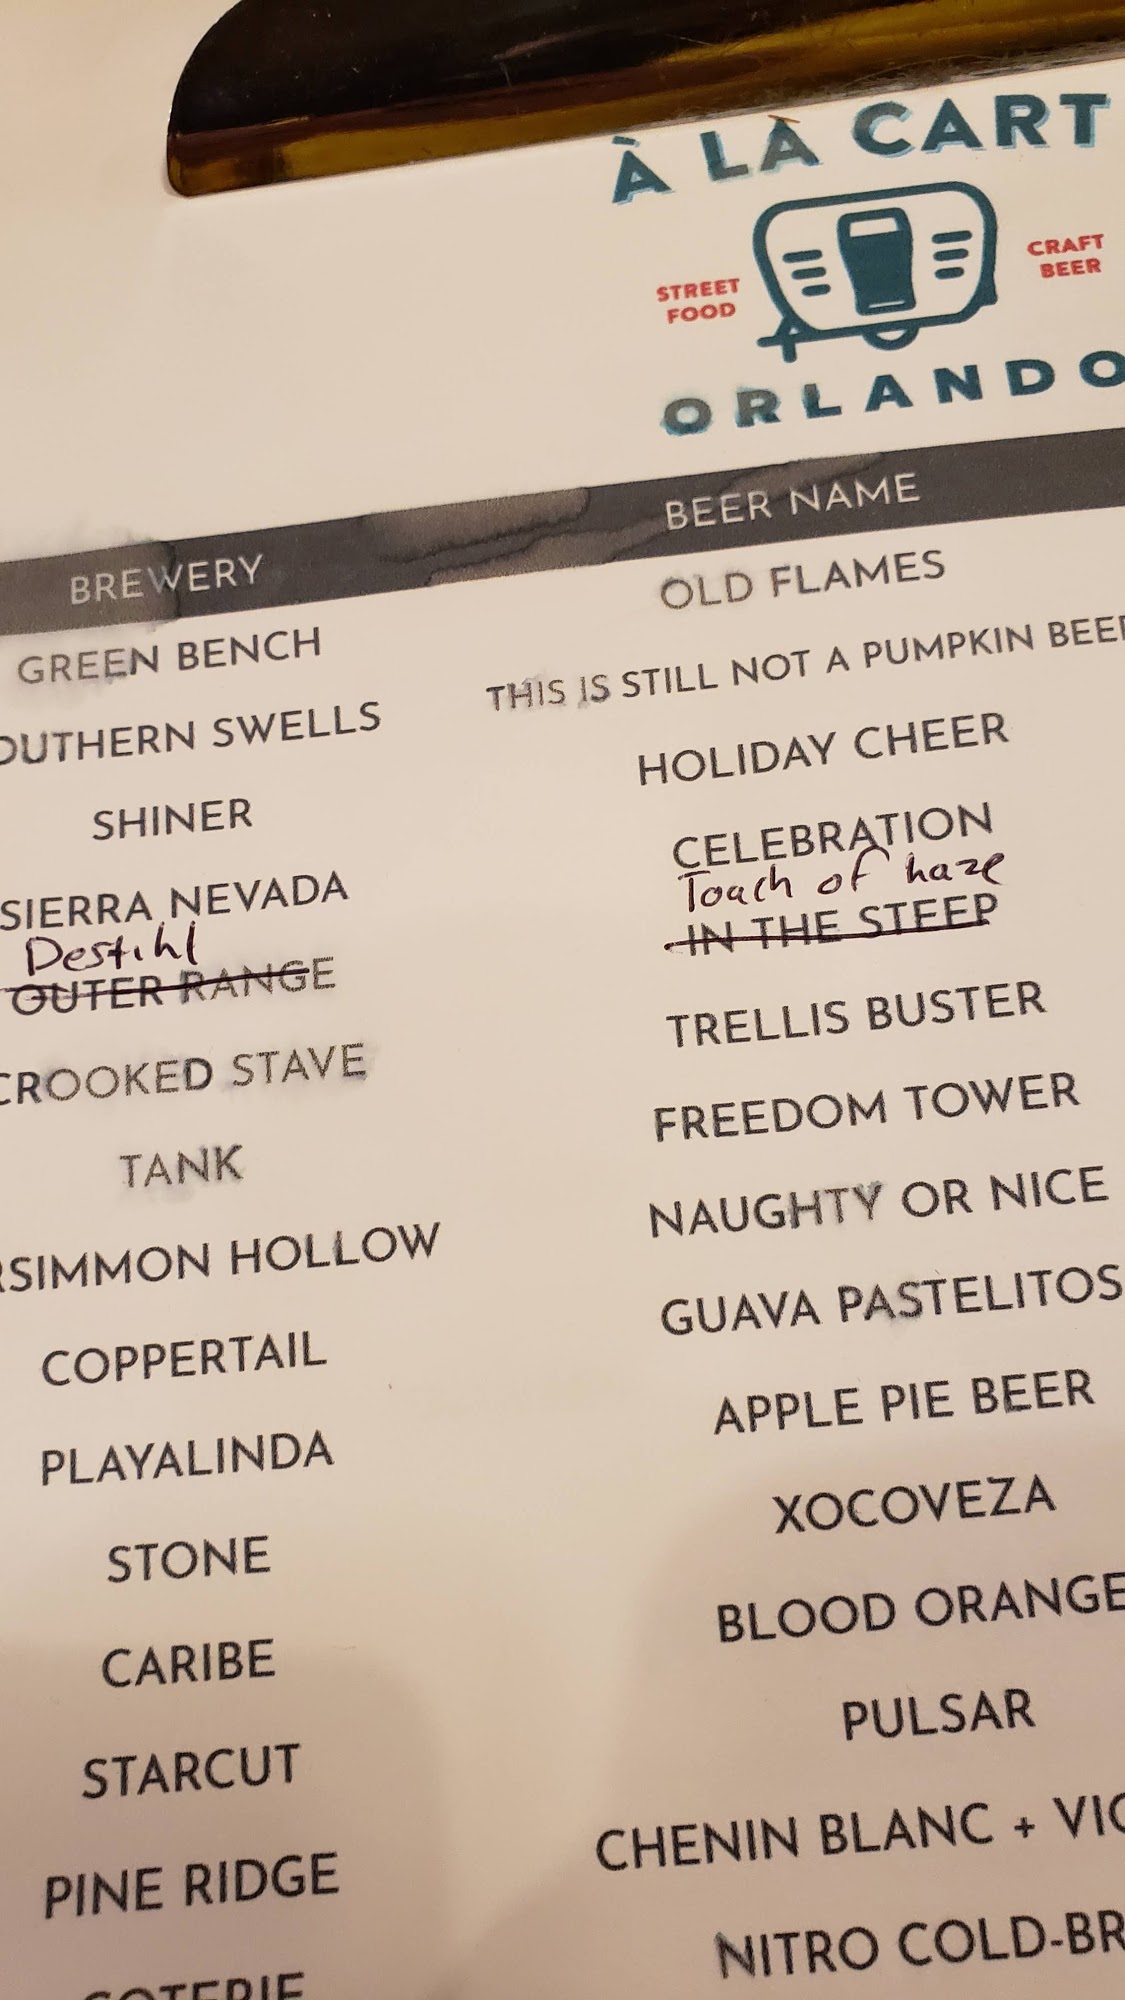 À LA CART
STREET FOOD
CRAFT BEER
ORLANDO
BREWERY BEER NAME
GREEN BENCH OLD FLAMES
OUTHERN SWELLS THIS IS STILL NOT A PUMPKIN BEER
SHINER HOLIDAY CHEER
SIERRA NEVADA CELEBRATION
Destihl Touch of haze
OUTER RANGE IN THE STEEP
CROOKED STAVE TRELLIS BUSTER
TANK FREEDOM TOWER
RSIMMON HOLLOW NAUGHTY OR NICE
COPPERTAIL GUAVA PASTELITOS
PLAYALINDA APPLE PIE BEER
STONE XOCOVEZA
CARIBE BLOOD ORANGE
STARCUT PULSAR
PINE RIDGE CHENIN BLANC + VIO
NITRO COLD-BR